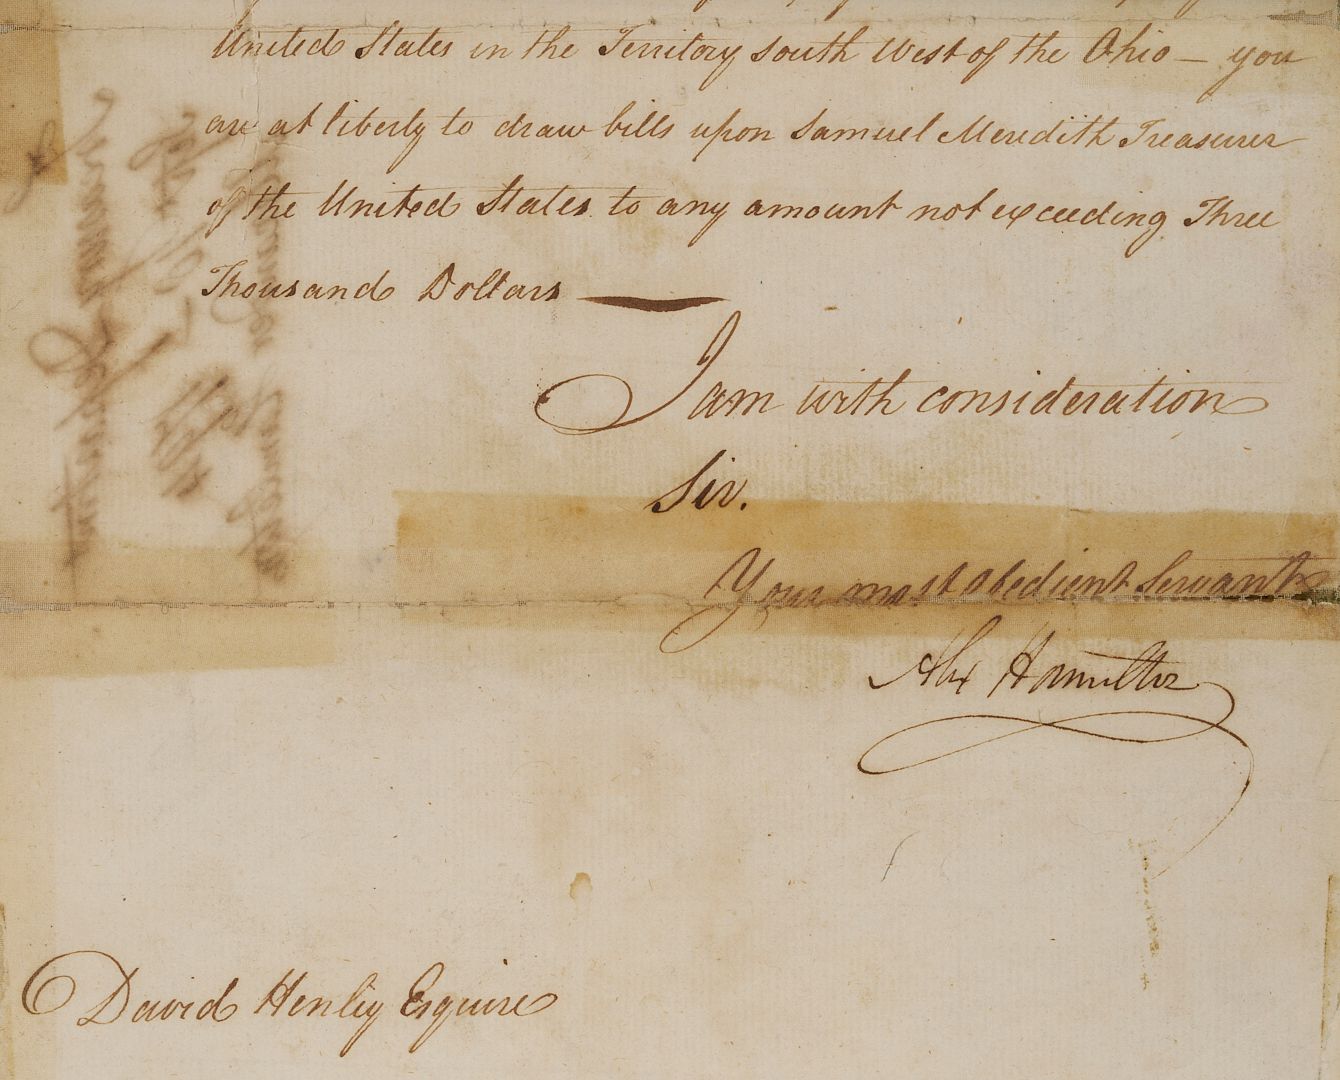 United States in the Territory south West of the Ohio — you
are at liberty to draw bills upon Samuel Meredith Treasurer
of the United States to any amount not exceeding Three
Thousand Dollars —
I am with consideration
Sir.
Your most obedient Servant
Alex Hamilton
David Henley Esquire